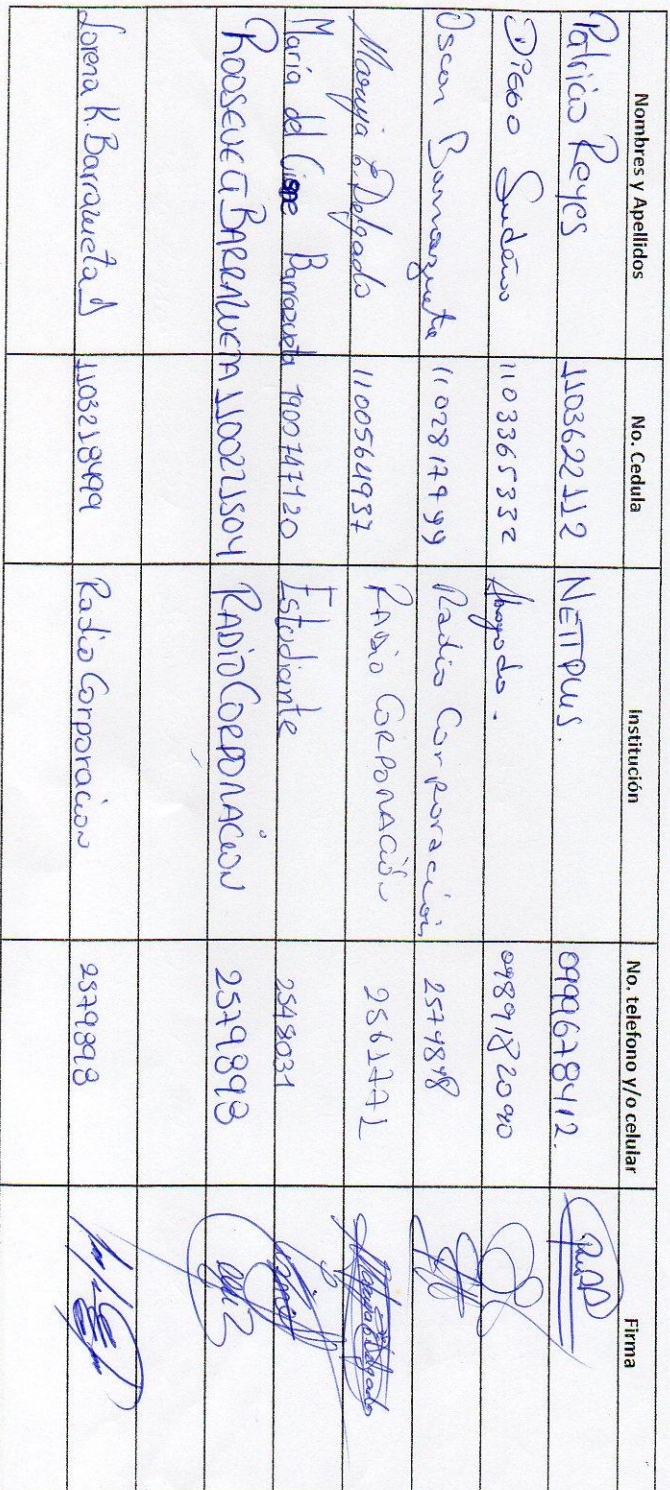 Nombres y Apellidos No. Cedula Institución No. telefono y/o celular Firma
Patricio Reyes 1103622112 NETTPLUS. 0999678412.
Diego Sudeiro 1103365332 Abogado. 0989182090
Oscar Barrazueta 1102817999 Radio Corporación 2579898
Maruja E. Delgado 1100564937 RADIO CORPORACIÓN 2561771 Maruja E Delgado
María del Cisne Barrazueta 1900747120 Estudiante 2548031
ROOSEVELT BARRAZUETA 1100221504 RADIO CORPORACION 2579893
Lorena K. Barrazueta D 1103218499 Radio Corporacion 2579893